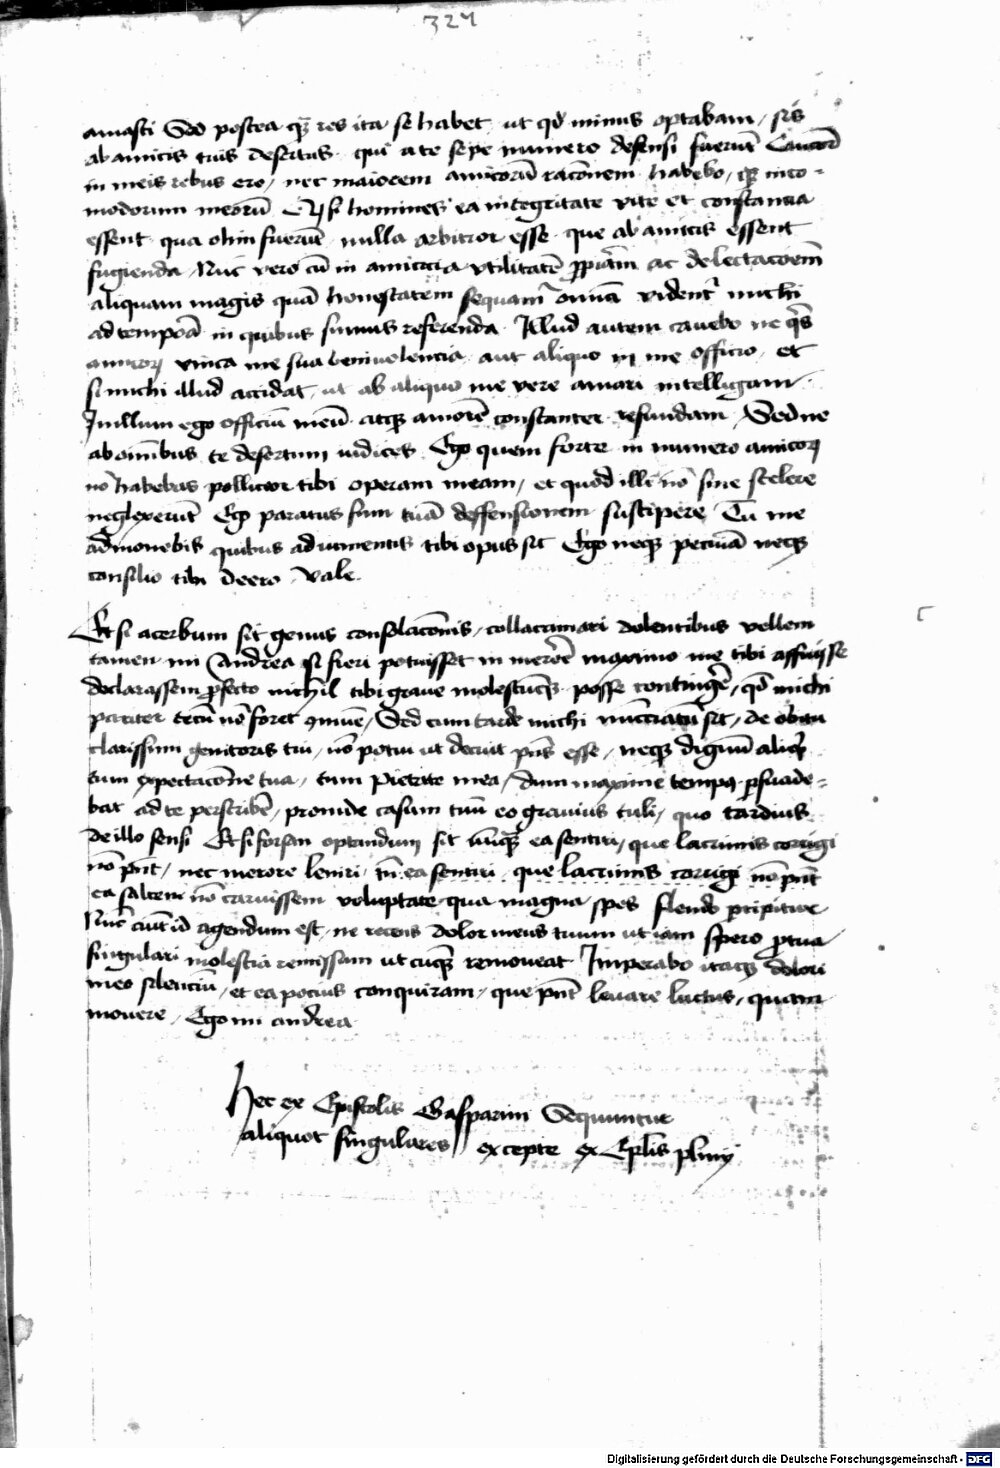 327
amasti Sed postea qz res ita se habet ut qd minus optabam / sis
ab amicis tuis desertus qui a te sepe numero defensi fuerūt Caucior
in meis rebus ero / nec maiorem amicorū racōnem habebo / qz inco=
modorum meorū Qz si homines ea integritate vite et constancia
essent qua olim fuerūt nulla arbitror esse que ab amicis essent
fugienda / Nūc vero cū in amicicia vtilitatē ac delectacōem
aliquam magis quā honestatem sequamr̄ omīa videntr̄ michi
ad tempora in quibus sumus referenda Illud autem cavebo ne
vinca me sua benivolencia aut aliquo in me officio et
si michi illud accidat ut ab aliquo me vere amari intelligam
In illum ego officiū meū atqz amorē constanter refundam / Sed ne
ab omībus te desertum iudices Ego quem forte in numero amicorꝝ
nō habebas polliceor tibi operam meam / et quod illi nō sine scelere
neglexerūt Ego paratus sum tuā deffensionem suscipere Tu me
admonebis quibus adiumentis tibi opus sit Ego neqz pecuniā neqz
consilio tibi deero Vale
Et si acerbum sit genus consolacōnis / collacrimari dolentibus vellem
tamen mi Andrea si fieri potuisset in merōre maximo me tibi affuisse
declarassem pfecto nichil tibi grave molestūqz posse contingēre / qd michi
pariter tecū nō foret 9mūe / Sed cum tarde michi nūcciatū sit / de obitu
clarissimi genitoris tui / nō potui ut decuit pn̄s esse / neqz dignū aliqd
tum expectacōne tua / tum pietate mea / dum maxime tempꝯ psuade=
bat ad te perscribē / proinde casum tuū eo gravius tuli / quo tardius
de illo sensi Et si forsan optandum sit nūqz ea sentiri / que lacrimis corrigi
nō pn̄t / nec merore leniri / tn̄ ea sentiri que lacrimis corrigi nō pn̄t
ea saltem nō caruissem voluptate qua magna spes flendo pcipitur
Nūc id agendum est / ne recens dolor meus tuum ut iam spero p tua
singulari molestia remissum ut cuqz removeat Imperabo itaqz dolori
meo silenciū / et ea pocius conquiram / que pn̄t levare luctus / quam
movere / Ego mi andrea
Hec ex Epistolis Gasparini Sequuntur
aliquot singulares // excepte ex Eplīs plinij
Digitalisierung gefördert durch die Deutsche Forschungsgemeinschaft - DFG